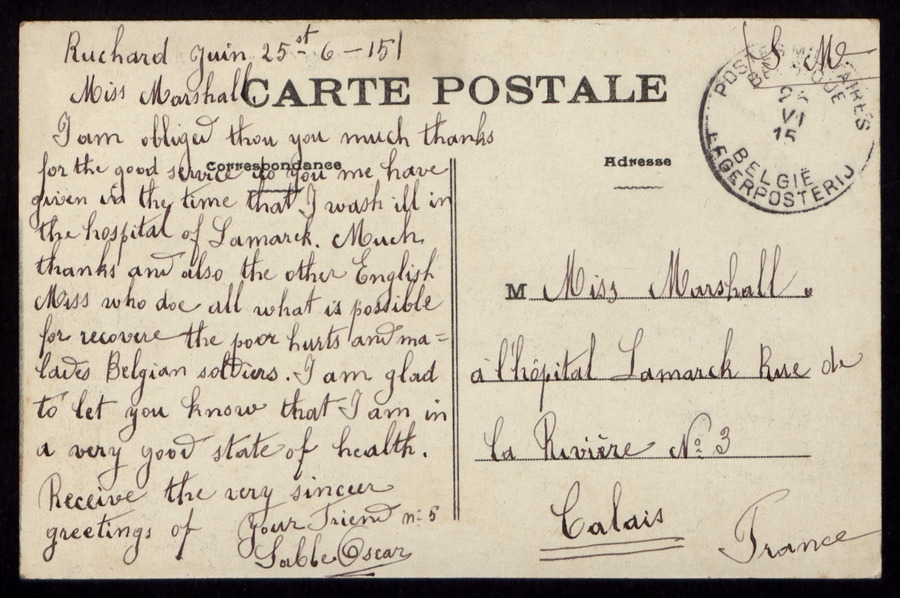 Ruchard Juin 25st-6-151
Miss Marshall,
CARTE POSTALE
I am obliged thou you much thanks
Correspondance
for the good service do you me have
given in the time that I wash ill in
the hospital of Lamarck. Much
thanks and also the other English
Miss who doe all what is possible
for recovere the poor hurts and ma=
lades Belgian soldiers. I am glad
to let you know that I am in
a very good state of health.
Receive the very sinceer
greetings of Your Friend n: 5
Sabbe Oscar
S. M.
POSTES MILITAIRES
BELGIQUE
25
VI
15
BELGIË
LEGERPOSTERIJ
Adresse
M Miss Marshall.
à l'hôpital Lamarck Rue de
la Rivière No 3
Calais
France